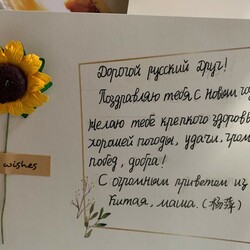 Дорогой русский Друг!
Поздравляю тебя с Новым го
Желаю тебе крепкого здоровь
хорошей погоды, удачи, гром
побед, добра!
С огромным приветом из
Китая, маша. (杨萍)
wishes